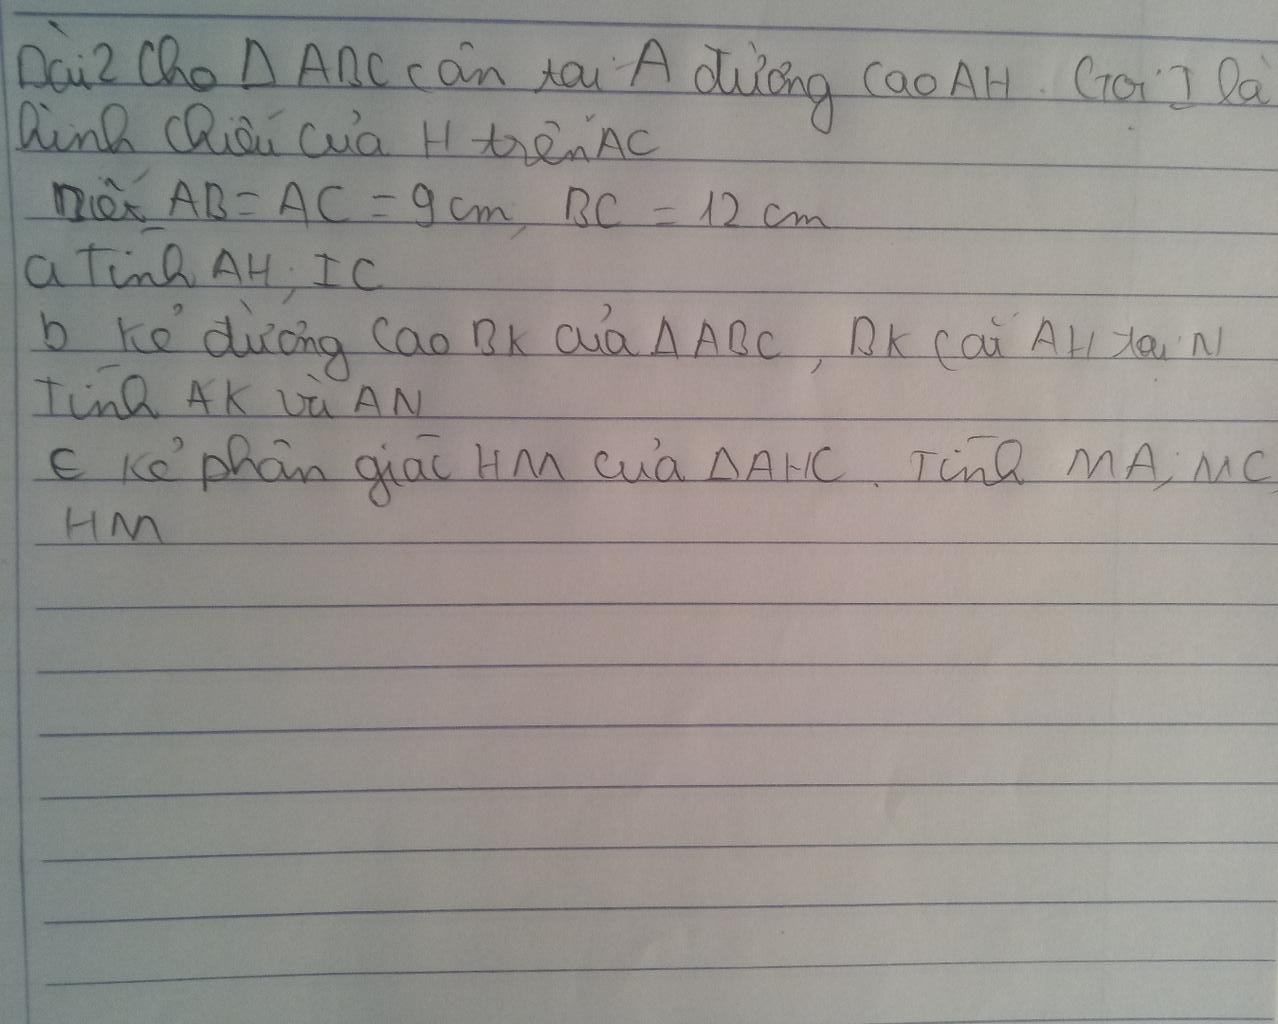 Bài 2 Cho Δ ABC cân tại A đường cao AH. Gọi I là
hình chiếu của H trên AC
Biết AB = AC = 9 cm, BC = 12 cm
a Tính AH, IC
b Kẻ đường cao BK của Δ ABC, BK cắt AH tại N
Tính AK và AN
c Kẻ phân giác HM của Δ AHC. Tính MA, MC,
HM